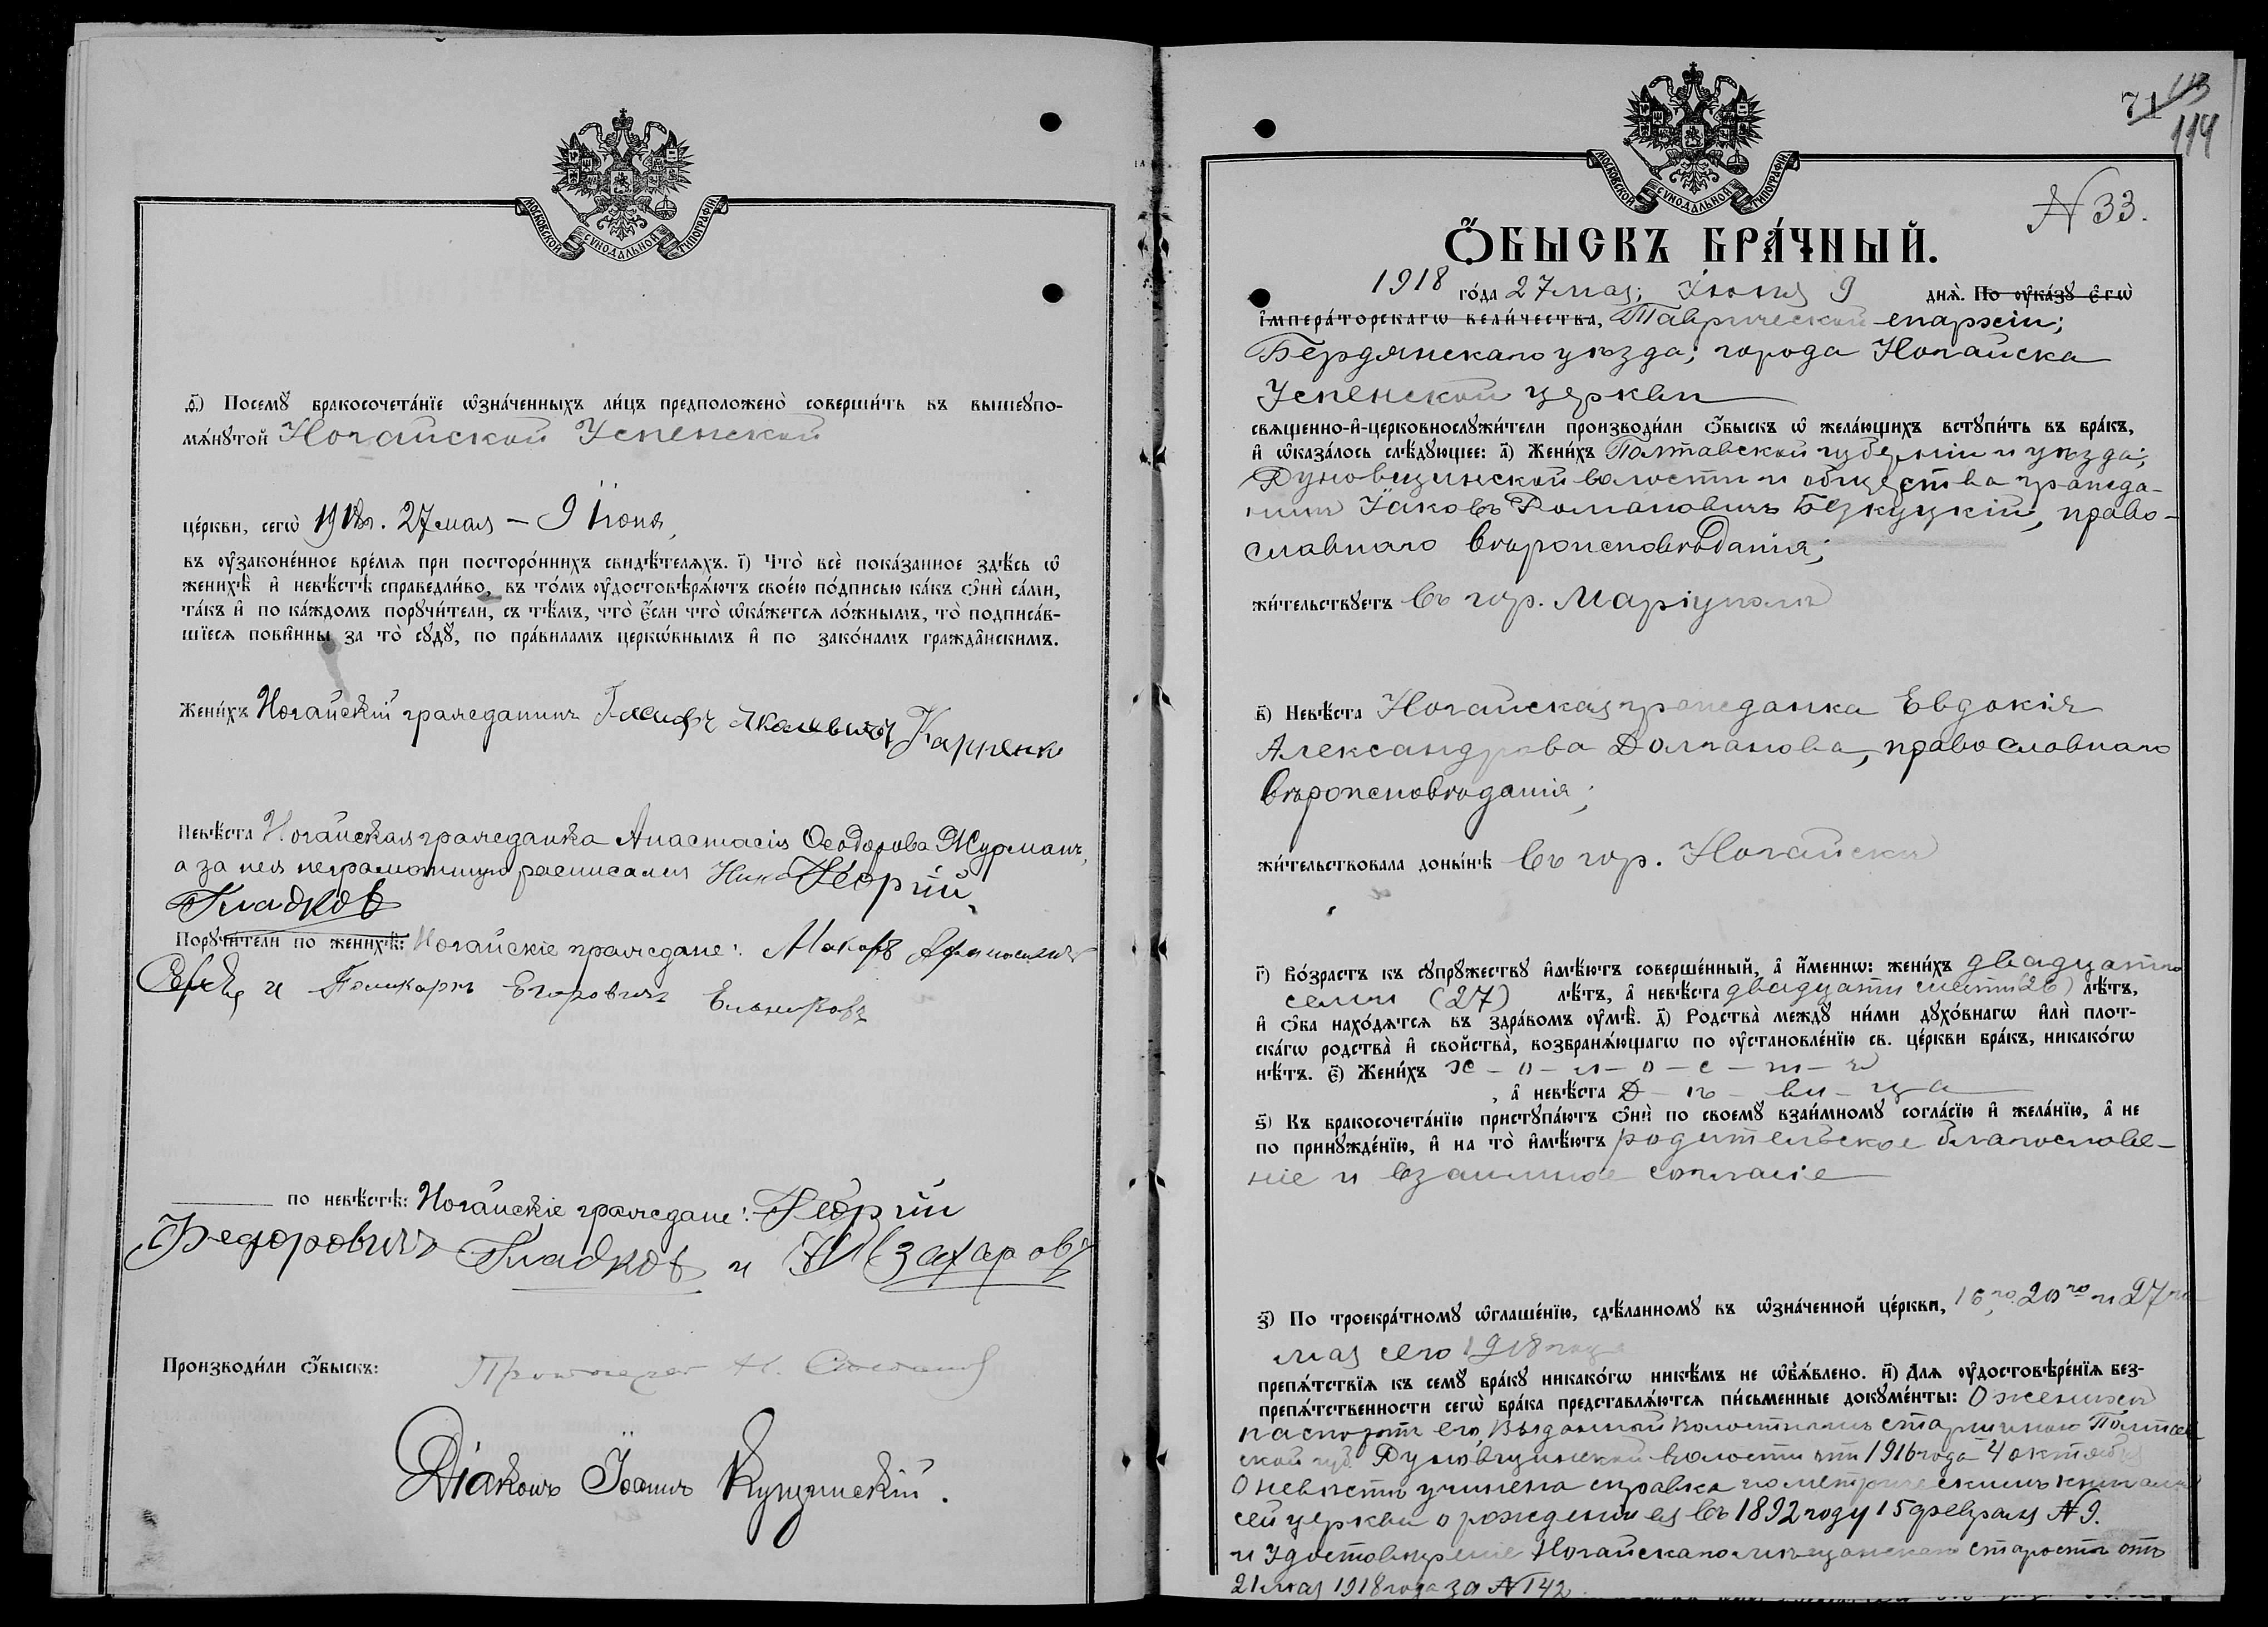 МОСКОВСКОЙ СѴНОДАЛЬНОЙ ТИПОГРАФІИ
ѳ҃) Посемꙋ бракосочета́нїе ѡ҆зна́ченныхъ ли́цъ предположено̀ соверши́ть въ вышеꙋпо-
мѧ́нꙋтой Ногайской Успенской
це́ркви, сегѡ̀ 1918г. 27 мая – 9 Іюня,
въ ᲂу҆зако́ненное вре́мѧ при посторо́ннихъ свидѣ́телѧхъ. і҃) Что̀ всѐ пока́занное здѣ́сь ѡ҆
женихѣ̀ и҆ невѣ́стѣ справедли́во, въ то́мъ ᲂу҆достовѣрѧ́ютъ свое́ю по́дписью ка́къ ѻ҆нѝ са́ми,
та́къ и҆ по ка́ждомъ порꙋчи́тели, съ тѣ́мъ, что̀ є҆́сли что̀ ѡ҆ка́жетсѧ ло́жнымъ, то̀ подписа́в-
шїесѧ пови́нны за то̀ сꙋдꙋ̀, по пра́виламъ церкѡ́внымъ и҆ по зако́намъ гражда́нскимъ.
Жени́хъ Ногайскій гражданинъ Іосифъ Яковлевичъ Карпенко
Невѣ́ста Ногайская гражданка Анастасія Ѳеодорова Журманъ,
а за нея неграмотную расписался Георгій
Гладковъ
Порꙋчи́тели по женихѣ̀: Ногайскіе граждане: Макаръ
и Поликарпъ Егоровичъ
по невѣ́стѣ: Ногайскіе граждане: Георгій
Федоровичъ Гладковъ и Захаровъ
Производи́ли ѻ҆́быскъ: Протоіерей Н.
Діаконъ Іоаннъ Кущинскій.
71 113
114
МОСКОВСКОЙ СѴНОДАЛЬНОЙ ТИПОГРАФІИ
N 33.
Ѻ҆́БЫСКЪ БРА́ЧНЫЙ.
1918 го́да 27 мая; Іюня 9 днѧ̀. По ᲂу҆ка́зꙋ є҆гѡ̀
і҆мпера́торскагѡ вели́чества, Таврической епархіи;
Бердянскаго уѣзда; города Ногайска
Успенской церкви
свѧще́нно-и҆-церковнослꙋжи́тели производи́ли ѻ҆́быскъ ѡ҆ жела́ющихъ встꙋпи́ть въ бра́къ,
и҆ ѡ҆каза́лось слѣ́дꙋющее: а҃) Жени́хъ Полтавской губерніи и уѣзда;
волости и общества гражда-
нинъ Іаковъ Романовичъ Безкуцкій, право-
славнаго вѣроисповѣданія;
жи́тельствꙋетъ въ гор. Маріуполѣ
в҃) Невѣ́ста Ногайская гражданка Евдокія
Александрова Долганова, православнаго
вѣроисповѣданія;
жи́тельствовала доны́нѣ въ гор. Ногайскѣ
г҃) Во́зрастъ къ сꙋпрꙋ́жествꙋ и҆мѣ́ютъ соверше́нный, а҆ и҆́меннѡ: жени́хъ двадцати
семи (27) лѣ́тъ, а҆ невѣ́ста двадцати шести (26) лѣ́тъ,
и҆ ѻ҆́ба нахо́дѧтсѧ въ здра́вомъ ᲂу҆мѣ̀. д҃) Родства̀ междꙋ̀ ни́ми дꙋхо́внагѡ и҆лѝ плот-
ска́гѡ родства̀ и҆ сво́йства̀, возбранѧ́ющагѡ по ᲂу҆становле́нїю св. це́ркви бра́къ, никако́гѡ
нѣ́тъ. є҃) Жени́хъ х – о – л – о – с – т – ъ
, а҆ невѣ́ста д – ѣ – ви – ца
ѕ҃) Къ бракосочета́нїю пристꙋпа́ютъ ѻ҆нѝ по своемꙋ̀ взаи́мномꙋ согла́сїю и҆ жела́нїю, а҆ не
по принꙋжде́нїю, и҆ на то̀ и҆мѣ́ютъ родительское благослове-
ніе и взаимное согласіе
з҃) По троекра́тномꙋ ѡ҆глаше́нїю, сдѣ́ланномꙋ въ ѡ҆зна́ченной це́ркви, 20го и 27го
мая сего 1918 года
препѧ́тствїѧ къ семꙋ̀ бра́кꙋ никако́гѡ никѣ́мъ не ѡ҆бъѧ́влено. и҃) Длѧ ᲂу҆достовѣре́нїѧ без-
препѧ́тственности сегѡ̀ бра́ка представлѧ́ютсѧ пи́сьменные докꙋме́нты: О женихѣ
паспортъ его, выданный волостнымъ старшиною Полтав-
ской губ. волости отъ 1916 года 4 октября
О невѣстѣ учинена справка по метрическимъ книгамъ
сей церкви о рожденіи ея въ 1892 году 15 февраля N 9.
и удостовѣреніе Ногайскаго мѣщанскаго старосты отъ
21 мая 1918 года за N 142.